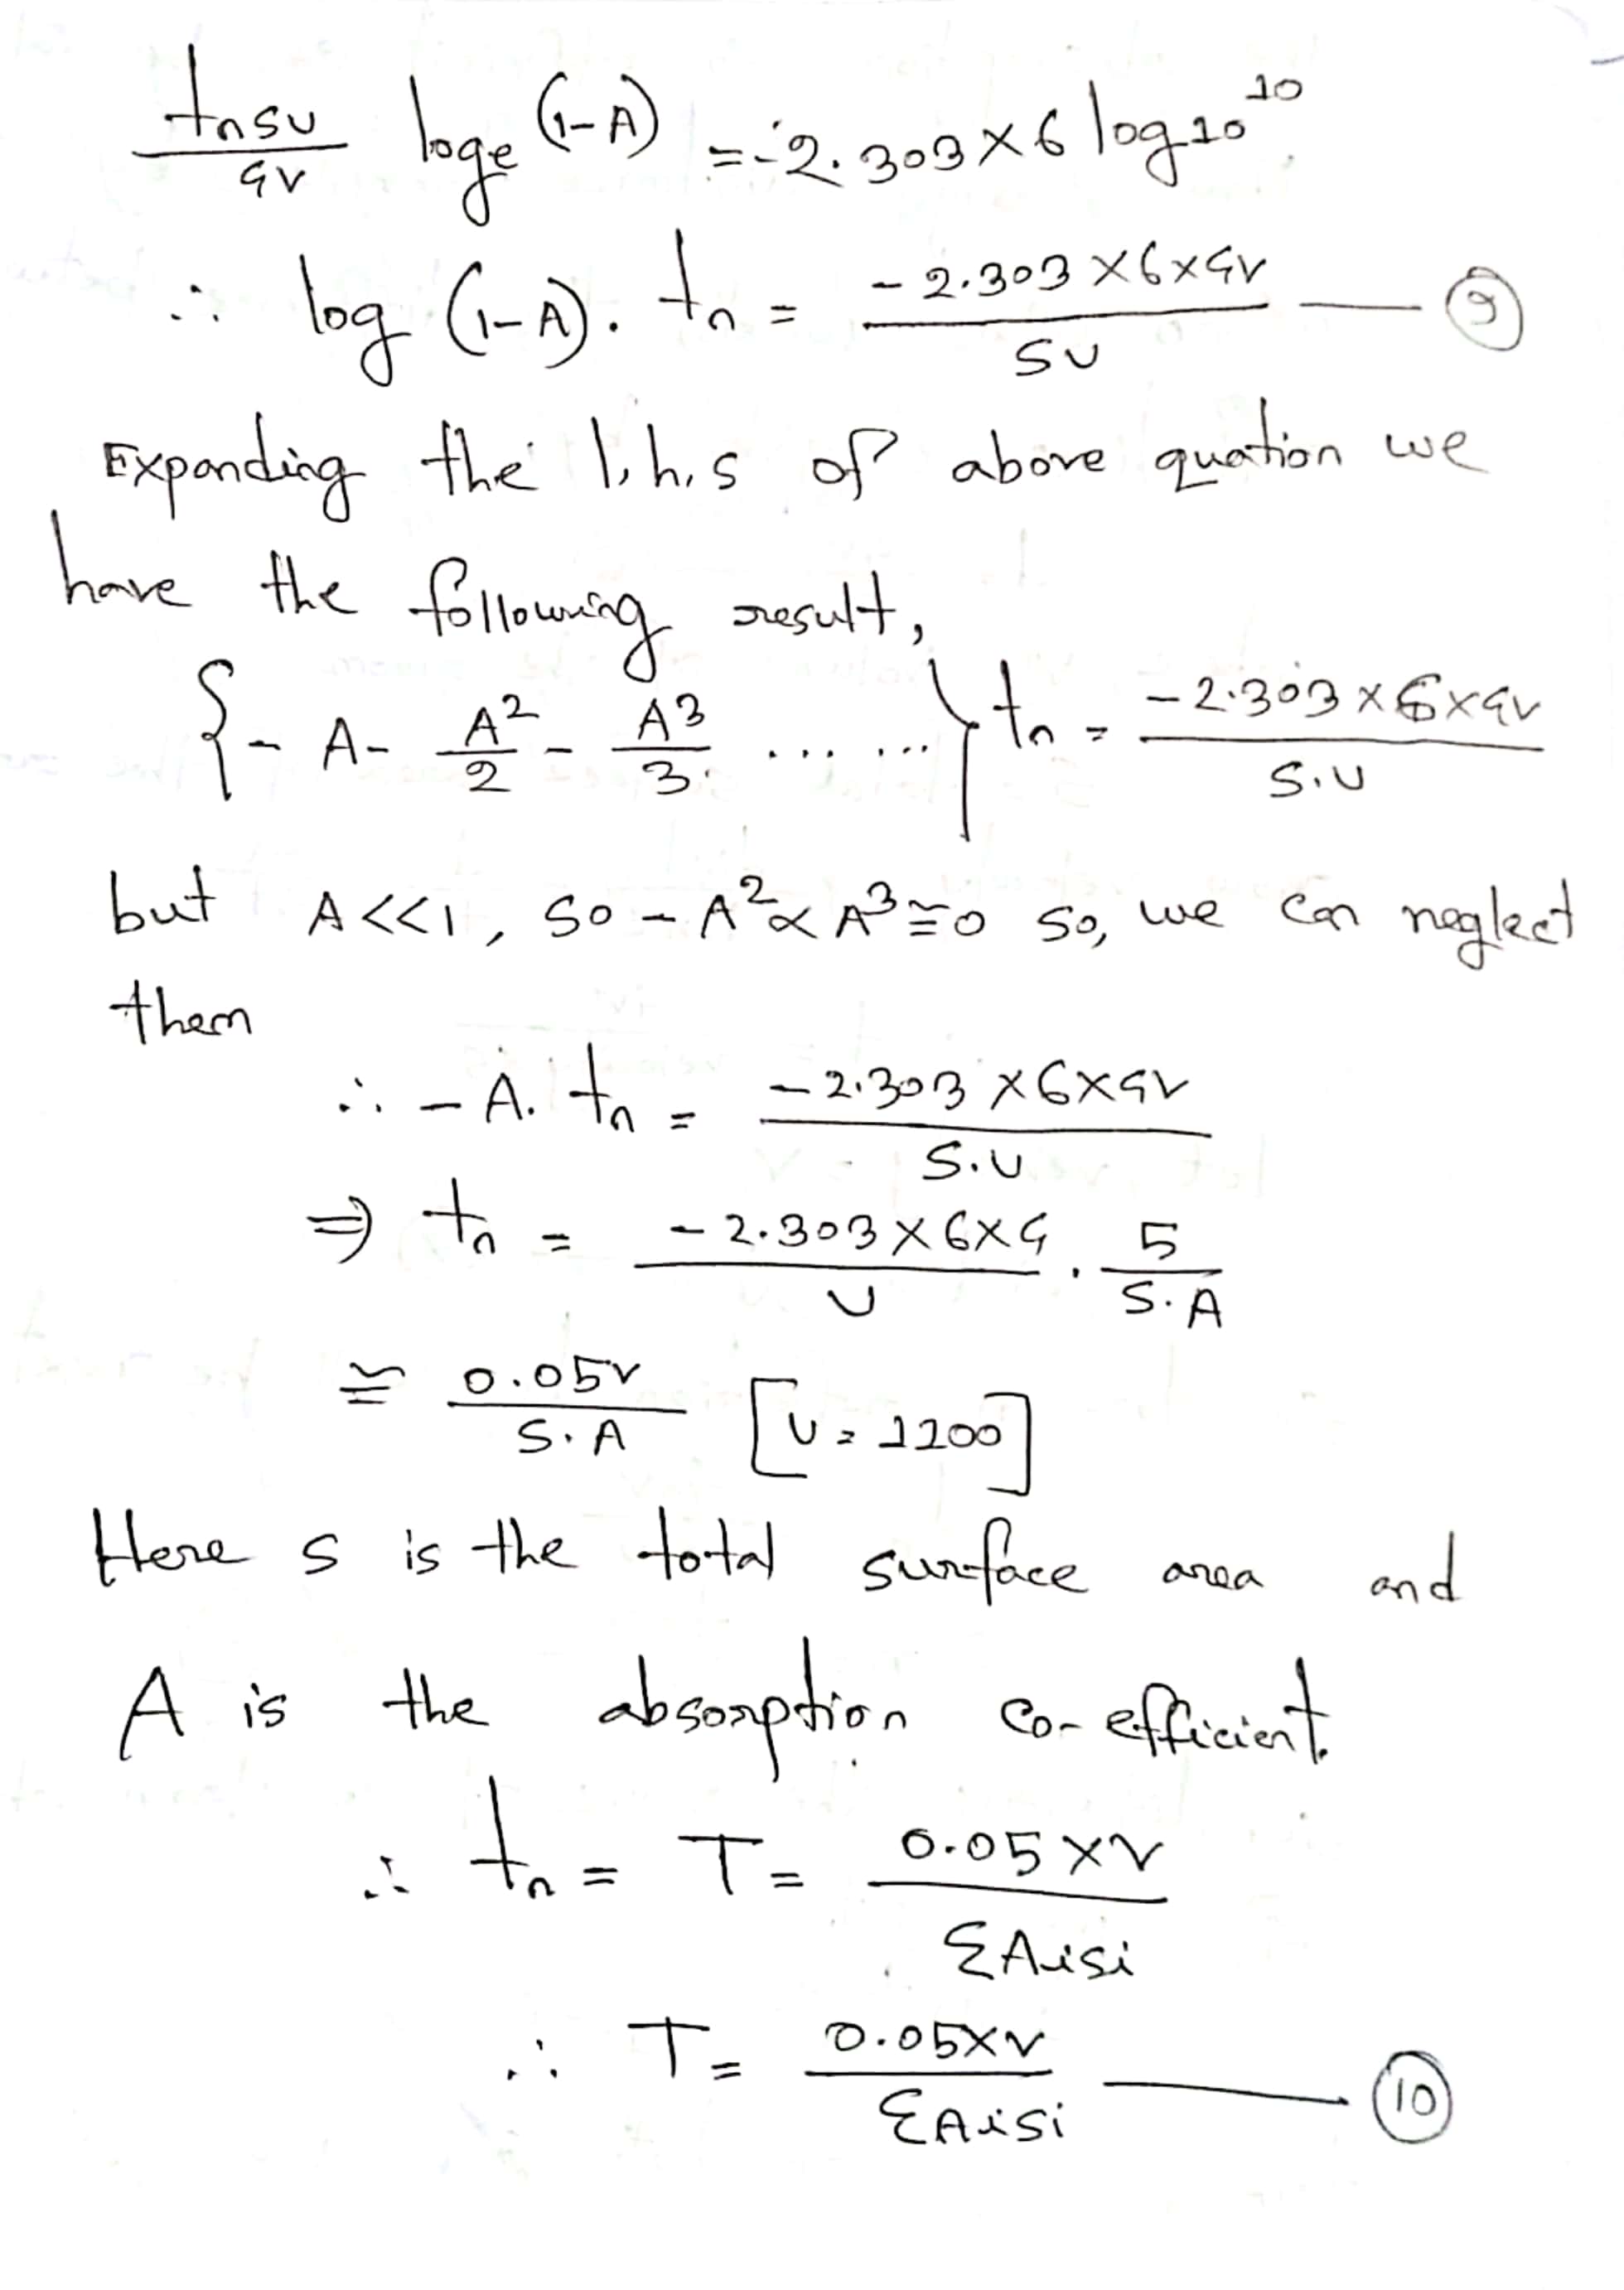 tnsυ/4v loge (1-A) = -2.303×6 log10 10
∴ log (1-A). tn = -2.303×6×4v/sυ — (9)
Expanding the l.h.s of above quation we
have the following result,
{-A- A²/2 - A³/3 ..... ...} tn = -2.303×6×4v/s.υ
but A<<1, so - A² & A³≅0 so, we can neglect
them
∴ -A. tn = -2.303×6×4v/s.υ
⇒ tn = -2.303×6×4/υ . 5/s.A
≅ 0.05v/s.A [υ = 1200]
Here s is the total surface area and
A is the absorption co-efficient.
∴ tn = T = 0.05×v/ΣAisi
∴ T = 0.05×v/ΣAisi — (10)